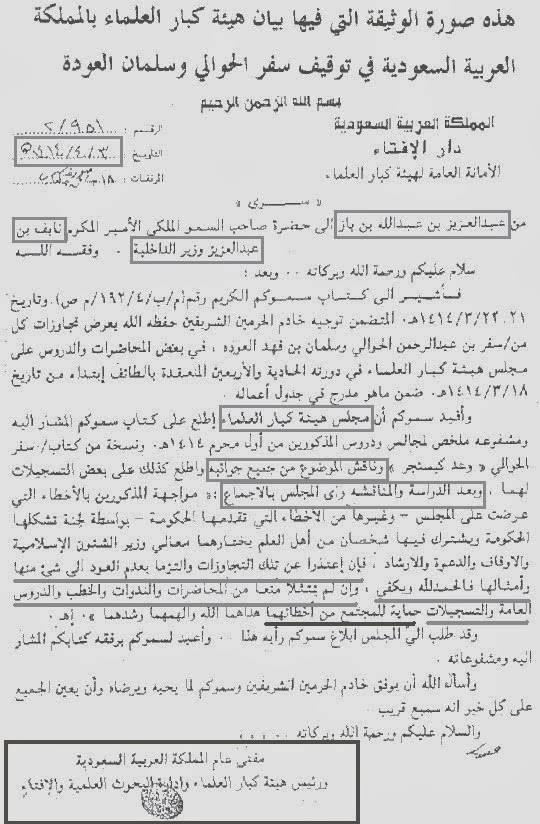 هذه صورة الوثيقة التي فيها بيان هيئة كبار العلماء بالمملكة
العربية السعودية في توقيف سفر الحوالي وسلمان العودة
بسم الله الرحمن الرحيم
المملكة العربية السعودية
دار الإفتاء
الأمانة العامة لهيئة كبار العلماء
الرقم : ٢/٩٥١
التاريخ :
المرفقات :
« ســـري »
من عبدالعزيز بن عبدالله بن باز إلى حضرة صاحب السمو الملكي الأمير المكرم نايف بن
عبدالعزيز وزير الداخلية . وفقـــه اللـــه
سلام عليكم ورحمة الله وبركاته .. وبعد :
فـأشيـــر الى كتـــاب سمـوكم الكريم رقم (م/ب/٤/١٩٢/م ص) وتاريخ
٢١،٢٢/٣/١٤١٤هـ المتضمن توجيه خادم الحرمين الشريفين حفظه الله بعرض تجاوزات كل
من/سفر بن عبدالرحمن الحوالي وسلمان بن فهد العوده ، في بعض المحاضرات والدروس على
مجلس هيئـة كبـار العلمـاء في دورته الحادية والأربعين المنعقـدة بالطائف إبتـداء من تاريخ
١٤١٤/٣/١٨هـ ضمن ماهو مدرج في جدول أعماله .
وأفيـد سموكم أن مجلس هيئة كبار العلماء إطلع على كتاب سموكم المشار اليه
ومشفوعه ملخص لمجالس ودروس المذكورين من أول محرم ١٤١٤هـ ونسخة من كتاب/ سفر
الحوالي « وعد كيسنجر » وناقش الموضوع من جميع جوانبه واطلع كذلك على بعض التسجيلات
لهما ، وبعد الدراسة والمناقشه رأى المجلس بالاجماع : « مواجهة المذكورين بالأخطاء التي
عرضت على المجلس - وغيرها من الأخطاء التي تقدمـها الحكومة - بواسطة لجنة تشكلها
الحكومة ويشترك فيـها شخصان من أهل العلم يختارهما معالي وزير الشئون الإسلامية
والاوقاف والدعوة والارشاد ، فإن إعتذرا عن تلك التجاوزات والتزما بعدم العود الى شئ منها
وأمثالها فالحمدلله ويكفي ، وإن لم يمتثلا منعا من المحاضرات والندوات والخطب والدروس
العامة والتسجيلات حماية للمجتمع من أخطائهما هداهما الله والهمهما رشدهما » . إهـ .
وقد طلب الي المجلس ابلاغ سموكم رأيه هذا .. وأعيد لسموكم برفقه كتابكم المشار
اليه ومشفوعاته .
وأسأل الله أن يوفق خادم الحرمين الشريفين وسموكم لما يحبه ويرضاه وأن يعين الجميع
على كل خير انه سميع قريب ..
والسلام عليكم ورحمة الله وبركاته .. ، ، ،
مفتي عام المملكة العربية السعودية
ورئيس هيئة كبار العلماء وادارة البحوث العلمية والإفتاء